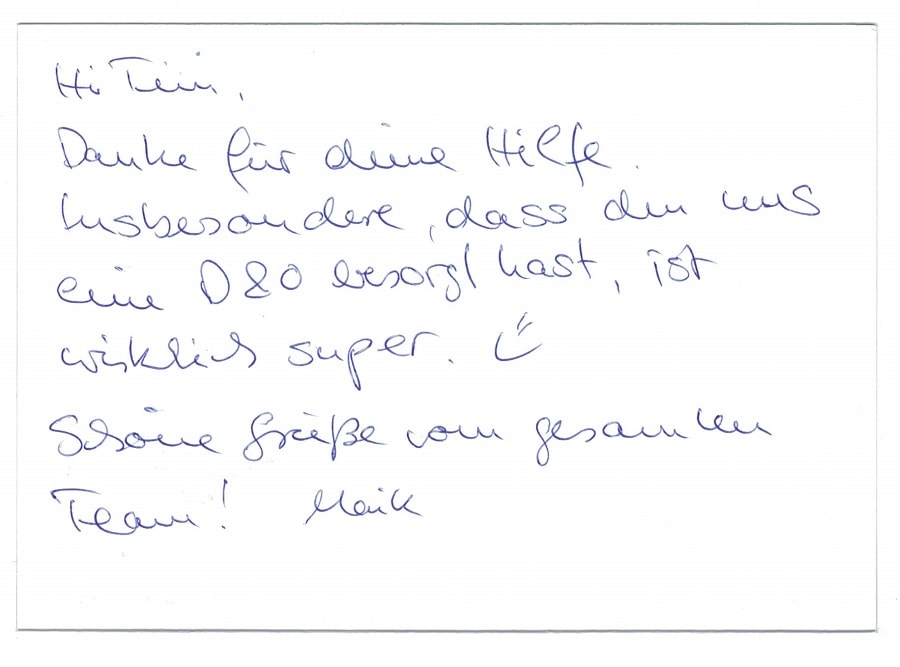 Hi Tim,
Danke für deine Hilfe.
Insbesondere, dass du uns
eine D&O besorgt hast, ist
wirklich super.
Schöne Grüße vom gesamten
Team! Maik